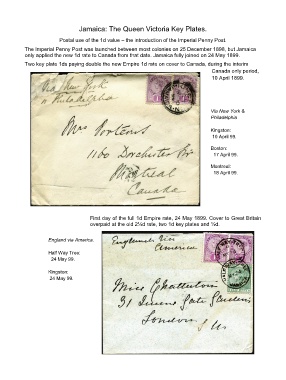 Jamaica: The Queen Victoria Key Plates.
Postal use of the 1d value – the introduction of the Imperial Penny Post.
The Imperial Penny Post was launched between most colonies on 25 December 1898, but Jamaica
only applied the new 1d rate to Canada from that date. Jamaica fully joined on 24 May 1899.
Two key plate 1ds paying double the new Empire 1d rate on cover to Canada, during the interim
Canada only period,
10 April 1899.
Via New York &
Philadelphia
Kingston:
10 April 99.
Boston:
17 April 99.
Montreal:
18 April 99.
Via New York
& Philadelphia
Mrs Porteous
1160 Dorchester
Montreal
Canada
First day of the full 1d Empire rate, 24 May 1899. Cover to Great Britain
overpaid at the old 2½d rate, two 1d key plates and ½d.
England via America.
Half Way Tree:
24 May 99.
Kingston:
24 May 99.
England Via
America
Miss Chatterton
31 Queens Gate Gardens
London